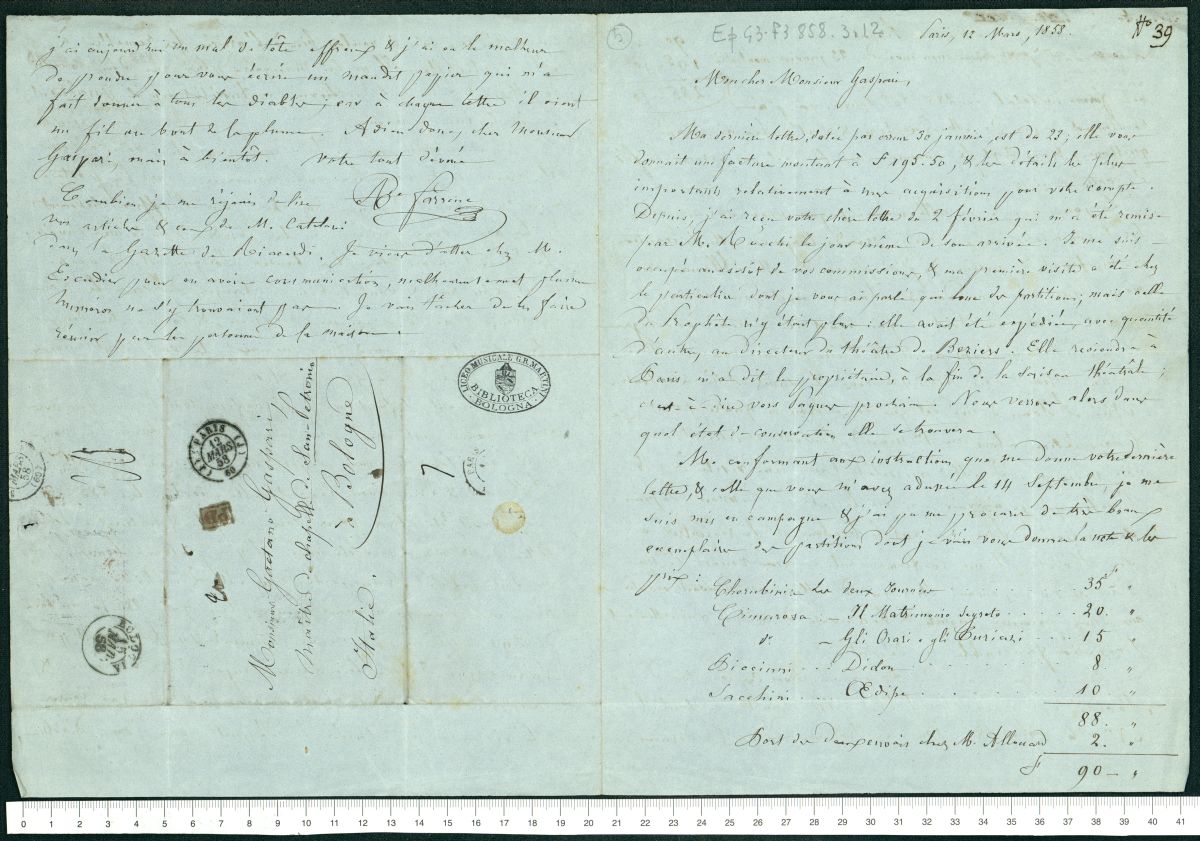 (5)
Ep. G3-P3 858.3.12
Paris, 12 Mars, 1858.
No 39
Mon cher Monsieur Gaspari,
Ma dernière lettre, datée par erreur 30 janvier, est du 23; elle vous
donnait une facture montant à f 195.50, & les détails les plus
importants relativement à mes acquisitions pour votre compte.
Depuis, j'ai reçu votre chère lettre du 2 février qui m'a été remise
par M. le jour même de son arrivée. Je me suis
occupé aussitôt de vos commissions, & ma première visite a été chez
le particulier dont je vous ai parlé qui loue des partitions; mais celle
du Prophète n'y était plus: elle avait été expédiée, avec quantité
d'autres, au directeur du théâtre de Beziers. Elle reviendra à
Paris, m'a dit le propriétaire, à la fin de la saison théâtrale;
c'est-à-dire vers Pâques prochain. Nous verrons alors dans
quel état de conservation elle se trouvera.
Me conformant aux instructions que me donne votre dernière
lettre, & celle que vous m'avez adressée le 14 Septembre, je me
suis mis en campagne & j'ai pu me procurer de très beaux
exemplaires des partitions dont je vais vous donner la note & les
prix:
Cherubini Les deux Journées 35 f "
Cimarosa - Il Matrimonio Segreto 20. "
do - Gli Orazi e gli Curiazi 15 "
Piccinni Didon 8 "
Sacchini Œdipe 10 "
88. "
Port des deux envois chez M. Allouard 2. "
f 90 — "
j'ai aujourd'hui un mal de tête affreux & j'ai eu le malheur
de prendre pour vous écrire un maudit papier qui m'a
fait donner à tous les diables; car à chaque lettre il vient
un fil au bout de la plume. Adieu donc, cher Monsieur
Gaspari, mais à bientôt. Votre tout dévoué
Combien je me réjouis de lire
Ate Farrenc
vos articles & ceux de M. Catelani
dans la Gazette de Ricordi. Je viens d'aller chez M.
Escudier pour en avoir communication, malheureusement plusieurs
numéros ne s'y trouvaient pas. Je vais tâcher de les faire
réunir par les personnes de la maison.
LICEO MUSICALE G.B. MARTINI
BIBLIOTECA
BOLOGNA
PARIS
12
MARS
58
(60)
MARS
58
(60)
PARIS
BOLOGNA
MAR.
58
7
Monsieur Gaetano Gaspari
maître de chapelle de San-Petronio
à Bologne
Italie.
0 1 2 3 4 5 6 7 8 9 10 11 12 13 14 15 16 17 18 19 20 21 22 23 24 25 26 27 28 29 30 31 32 33 34 35 36 37 38 39 40 41